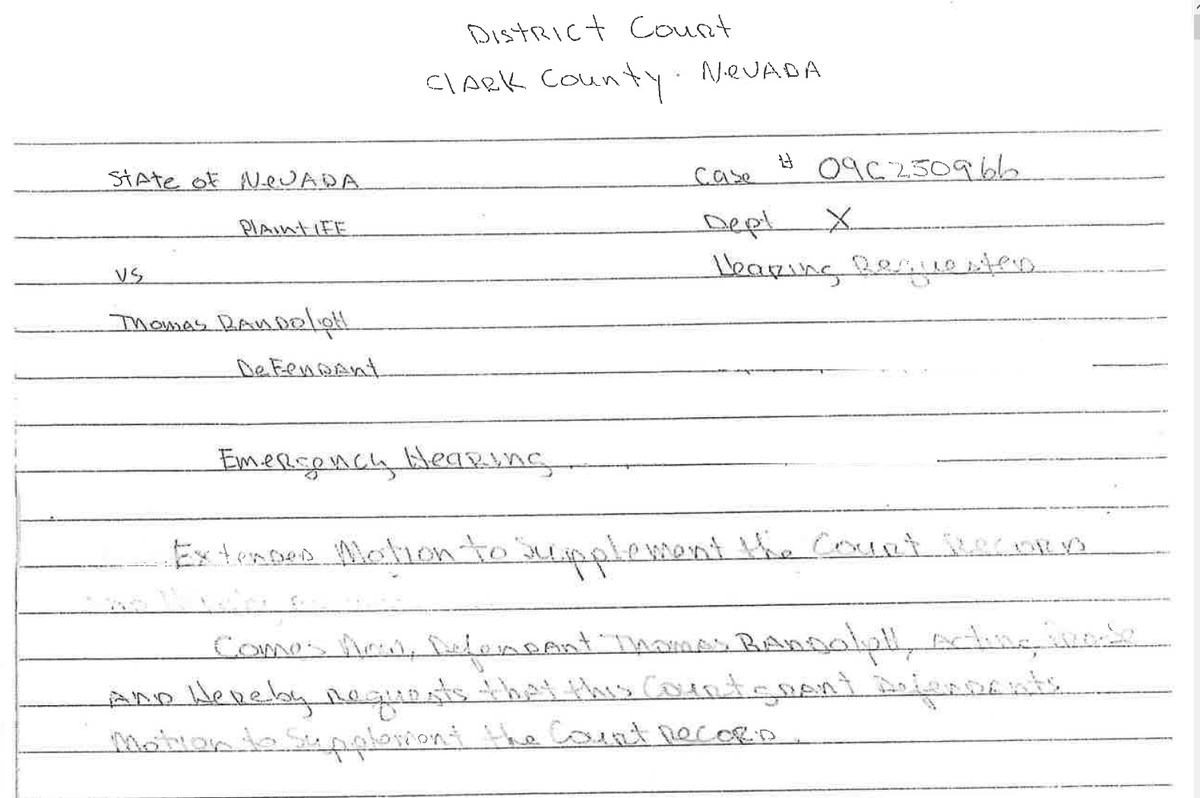 District Court
Clark County. Nevada
State of Nevada Case # 09C250966
Plaintiff Dept X
vs Hearing Requested
Thomas Randolph
Defendant
Emergency Hearing
Extended Motion to Supplement the Court Record
Comes Now, Defendant Thomas Randolph, Acting
And Hereby requests that this Court grant Defendants
Motion to Supplement the Court Record.